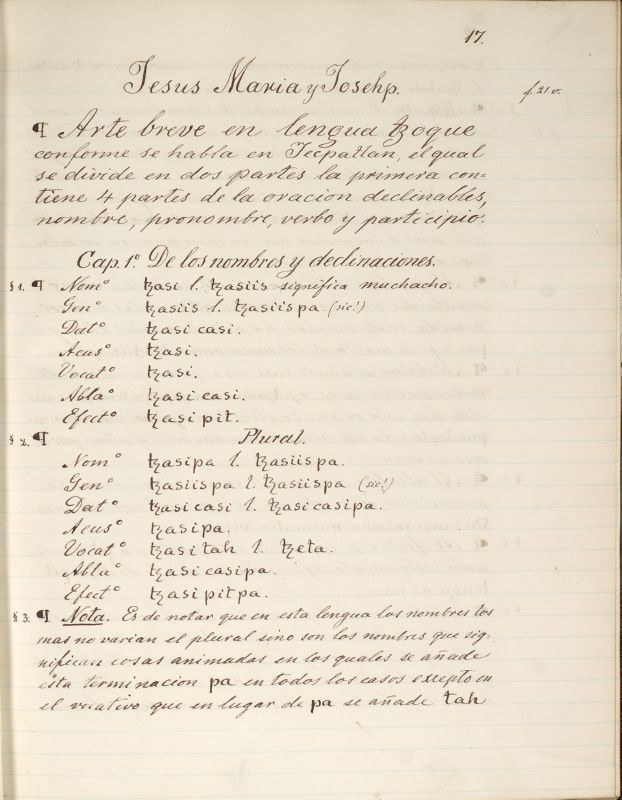 17.
Jesus Maria y Josehp.
f. 21 v.
¶ Arte breve en lengua tzoque
conforme se habla en Tecpatlan, el qual
se divide en dos partes la primera con=
tiene 4 partes de la oracion declinables,
nombre, pronombre, verbo y participio.
Cap. 1º. De los nombres y declinaciones.
§ 1. ¶ Nomº tzasi l. tzasiis significa muchacho.
Genº tzasiis l. tzasiispa. (sic!)
Datº tzasi casi.
Acusº tzasi.
Vocatº tzasi.
Ablaº tzasi casi.
Efectº tzasi pit.
§ 2. ¶ Plural.
Nomº tzasipa l. tzasiispa.
Genº tzasiispa l. tzasiispa (sic!)
Datº tzasicasi l. tzasicasipa.
Acusº tzasipa.
Vocatº tzasitah l. tzeta.
Ablaº tzasicasipa.
Efectº tzasipitpa.
§ 3. ¶ Nota. Es de notar que en esta lengua los nombres los
mas no varian el plural sino son los nombres que sig-
nifican cosas animadas en los quales se añade
esta terminacion pa en todos los casos excepto en
el vocativo que en lugar de pa se añade tah